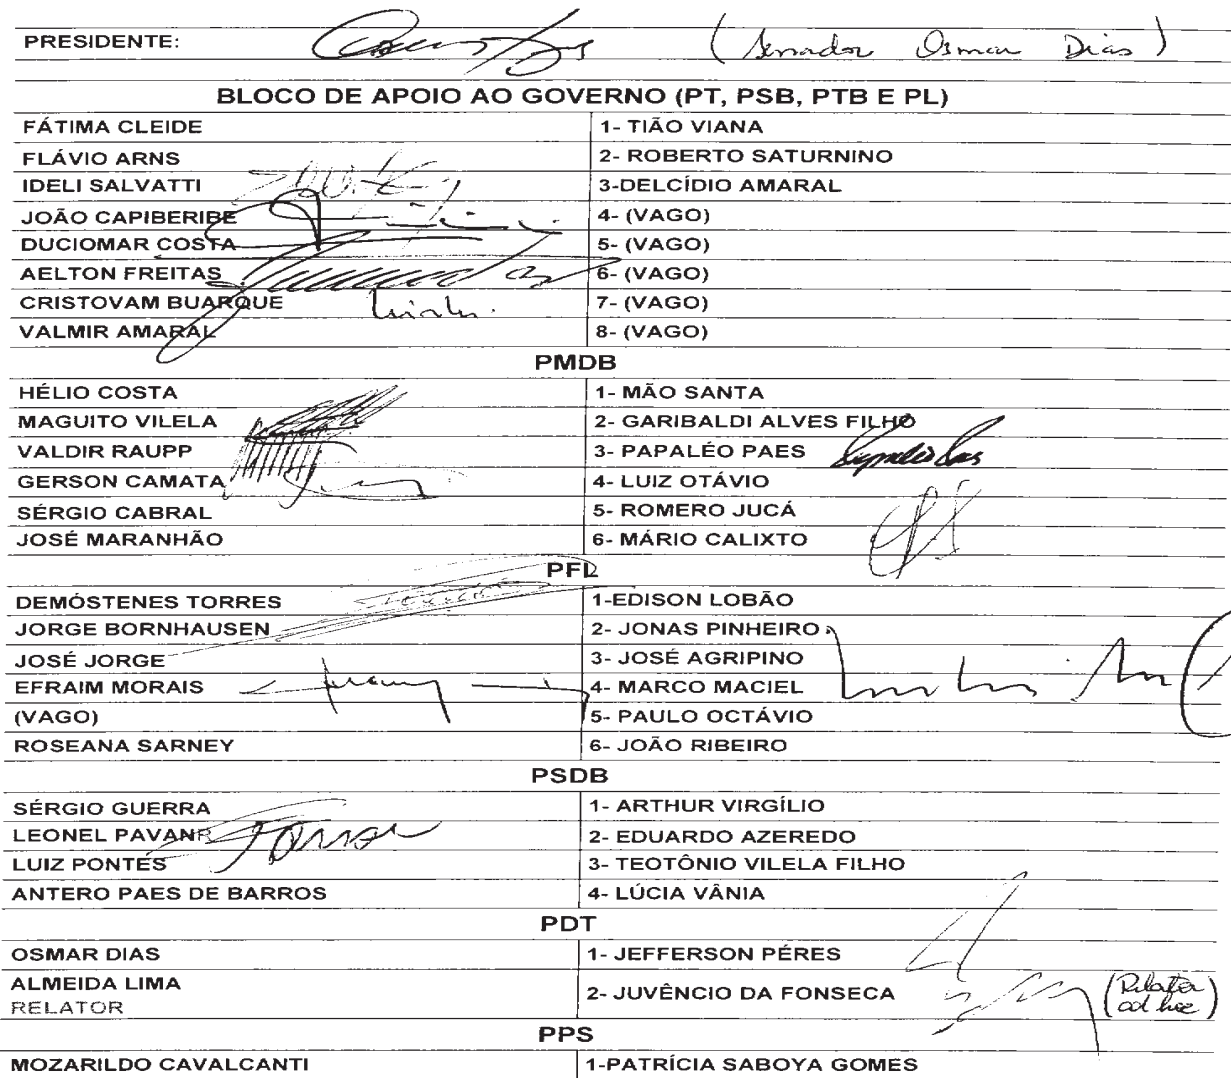 PRESIDENTE: (Senador Osmar Dias)
BLOCO DE APOIO AO GOVERNO (PT, PSB, PTB E PL)
FÁTIMA CLEIDE 1- TIÃO VIANA
FLÁVIO ARNS 2- ROBERTO SATURNINO
IDELI SALVATTI 3-DELCÍDIO AMARAL
JOÃO CAPIBERIBE 4- (VAGO)
DUCIOMAR COSTA 5- (VAGO)
AELTON FREITAS 6- (VAGO)
CRISTOVAM BUARQUE 7- (VAGO)
VALMIR AMARAL 8- (VAGO)
PMDB
HÉLIO COSTA 1- MÃO SANTA
MAGUITO VILELA 2- GARIBALDI ALVES FILHO
VALDIR RAUPP 3- PAPALÉO PAES
GERSON CAMATA 4- LUIZ OTÁVIO
SÉRGIO CABRAL 5- ROMERO JUCÁ
JOSÉ MARANHÃO 6- MÁRIO CALIXTO
PFL
DEMÓSTENES TORRES 1-EDISON LOBÃO
JORGE BORNHAUSEN 2- JONAS PINHEIRO
JOSÉ JORGE 3- JOSÉ AGRIPINO
EFRAIM MORAIS 4- MARCO MACIEL
(VAGO) 5- PAULO OCTÁVIO
ROSEANA SARNEY 6- JOÃO RIBEIRO
PSDB
SÉRGIO GUERRA 1- ARTHUR VIRGÍLIO
LEONEL PAVAN 2- EDUARDO AZEREDO
LUIZ PONTES 3- TEOTÔNIO VILELA FILHO
ANTERO PAES DE BARROS 4- LÚCIA VÂNIA
PDT
OSMAR DIAS 1- JEFFERSON PÉRES
ALMEIDA LIMA
RELATOR 2- JUVÊNCIO DA FONSECA (Relator ad hoc)
PPS
MOZARILDO CAVALCANTI 1-PATRÍCIA SABOYA GOMES